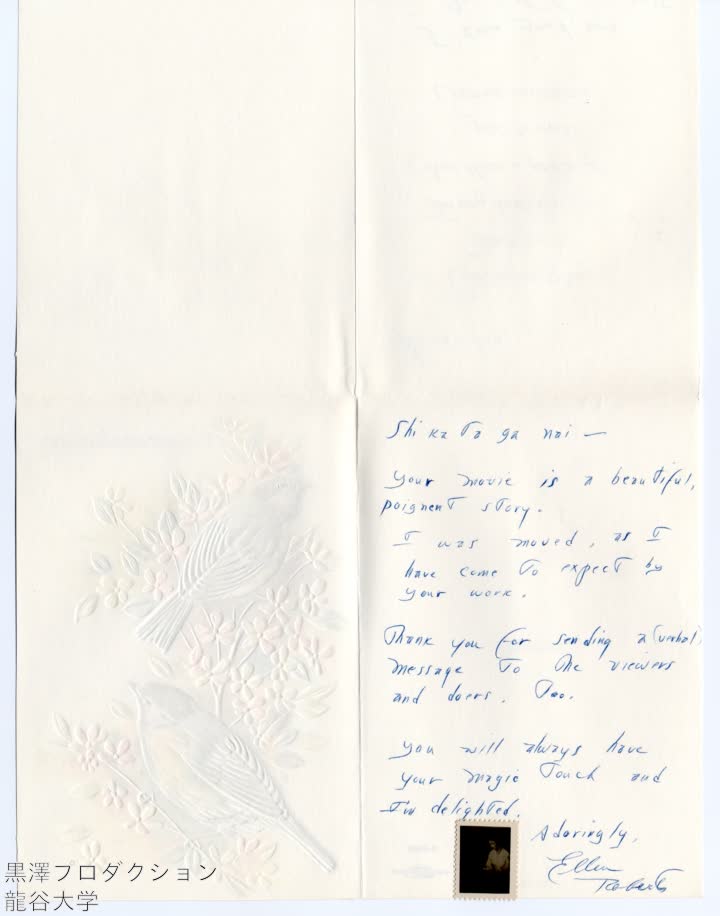 Shi ka ta ga nai —
Your movie is a beautiful,
poignent story.
I was moved, as I
have come to expect by
your work.
Thank you for sending a (verbal)
message to the viewers
and doers. Too.
You will always have
your magic touch and
I'm delighted.
Adoringly,
Ellen
Roberts
黒澤プロダクション
龍谷大学